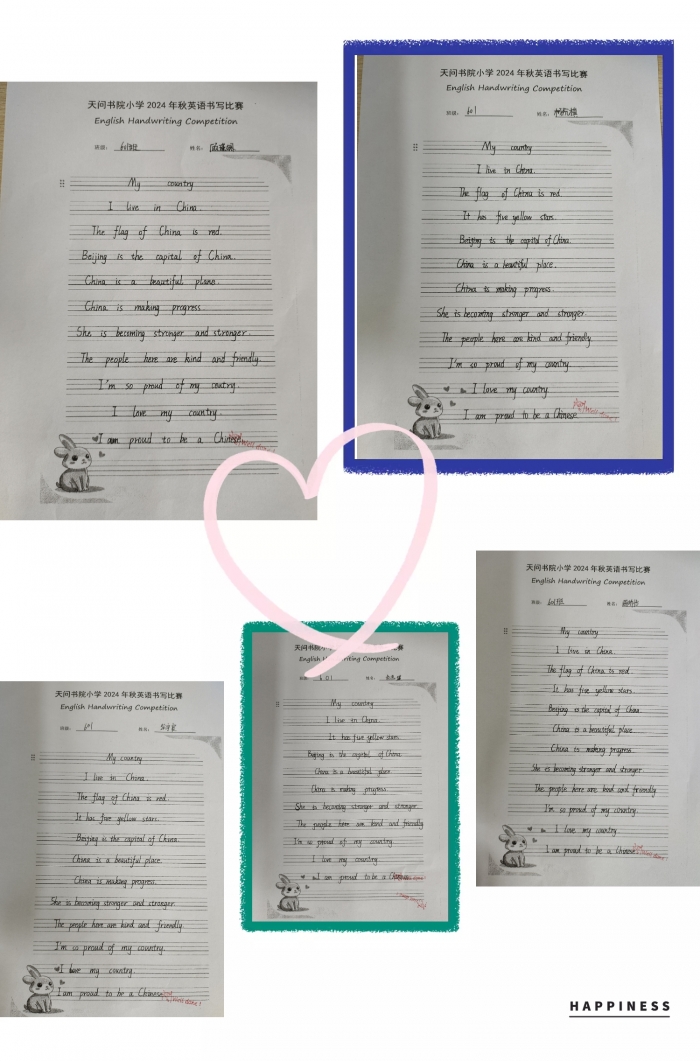 天问书院小学 2024 年秋英语书写比赛
English Handwriting Competition
班级： 601班 姓名：
My country
I live in China.
The flag of China is red.
Beijing is the capital of China.
China is a beautiful plane.
China is making progress.
She is becoming stronger and stronger.
The people here are kind and friendly.
I'm so proud of my coutry.
I love my country.
I am proud to be a Chinese.
Well done!
天问书院小学 2024 年秋英语书写比赛
English Handwriting Competition
班级： 601 姓名：
My country
I live in China.
The flag of China is red.
It has five yellow stars.
Beijing is the capital of China.
China is a beautiful place.
China is making progress.
She is becoming stronger and stronger.
The people here are kind and friendly.
I'm so proud of my country.
I love my country.
I am proud to be a Chinese.
Well done!
天问书院小学 2024 年秋英语书写比赛
English Handwriting Competition
班级： 601班 姓名：
My country
I live in China.
The flag of China is red.
It has five yellow stars.
Beijing is the capital of China.
China is a beautiful place.
China is making progress.
She is becoming stronger and stronger.
The people here are kind and friendly.
I'm so proud of my country.
I love my country.
I am proud to be a Chinese.
Well done!
English Handwriting Competition
601 姓名：
My country
I live in China.
It has five yellow stars.
Beijing is the capital of China.
China is a beautiful place.
China is making progress.
She is becoming stronger and stronger.
The people here are kind and friendly.
I'm so proud of my country.
I love my country.
I am proud to be a
天问书院小学 2024 年秋英语书写比赛
English Handwriting Competition
班级： 601 姓名：
My country
I live in China.
The flag of China is red.
It has five yellow stars.
Beijing is the capital of China.
China is a beautiful place.
China is making progress.
She is becoming stronger and stronger.
The people here are kind and friendly.
I'm so proud of my country.
I love my country.
I am proud to be a Chinese.
Well done!
HAPPINESS